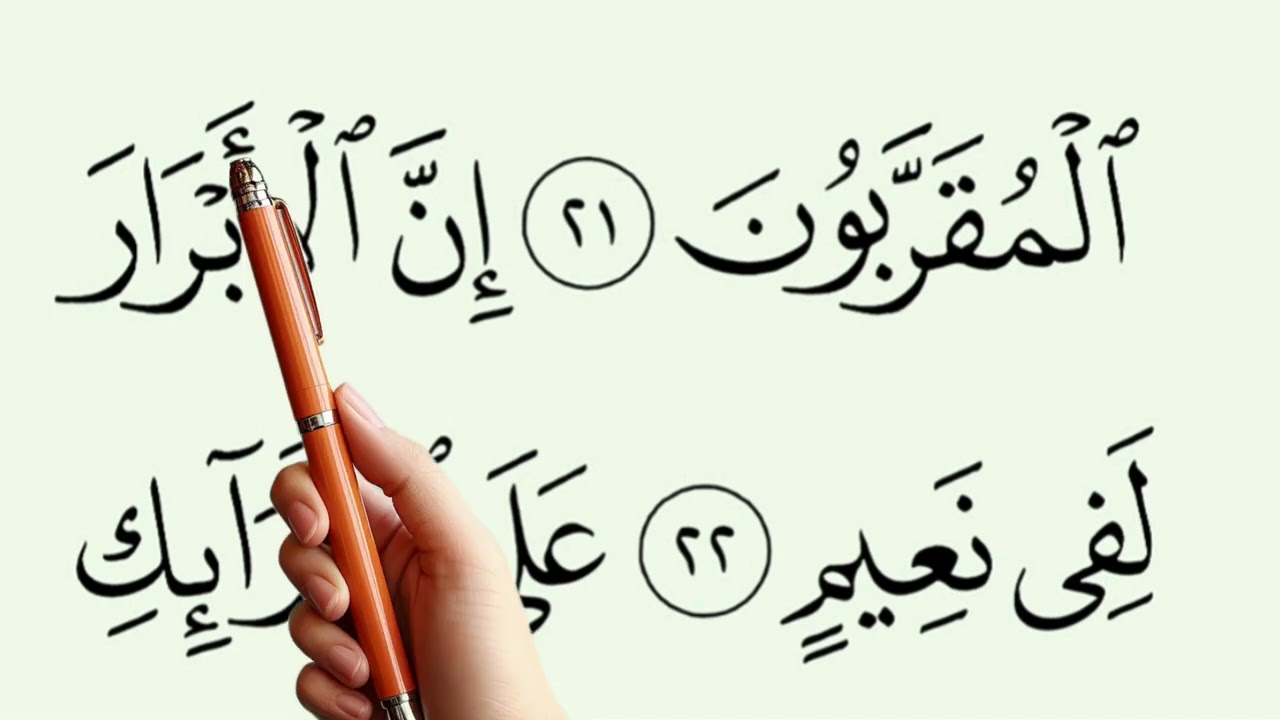 ٱلْمُقَرَّبُونَ ٢١ إِنَّ ٱلْأَبْرَارَ
لَفِى نَعِيمٍ ٢٢ عَلَى